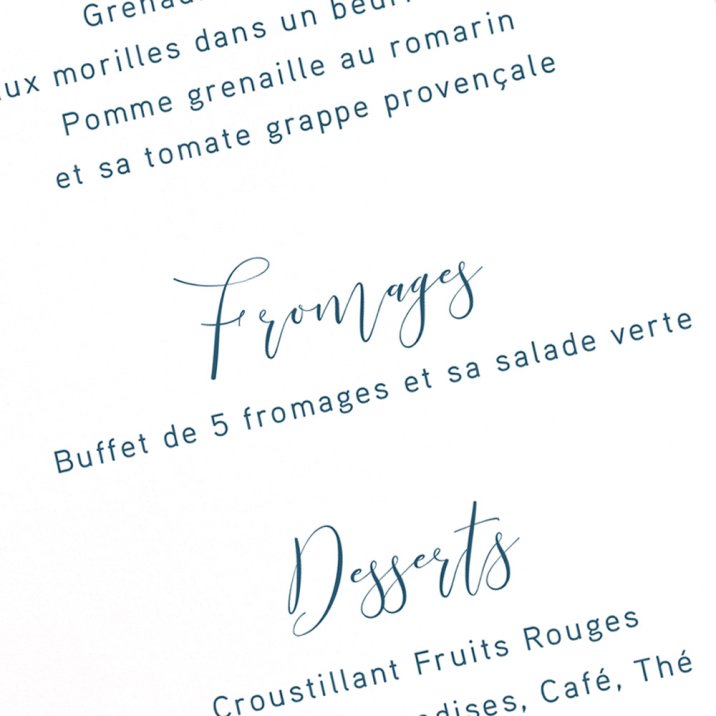 morilles dans un
Pomme grenaille au romarin
et sa tomate grappe provençale
Fromages
Buffet de 5 fromages et sa salade verte
Desserts
Croustillant Fruits Rouges
Café, Thé